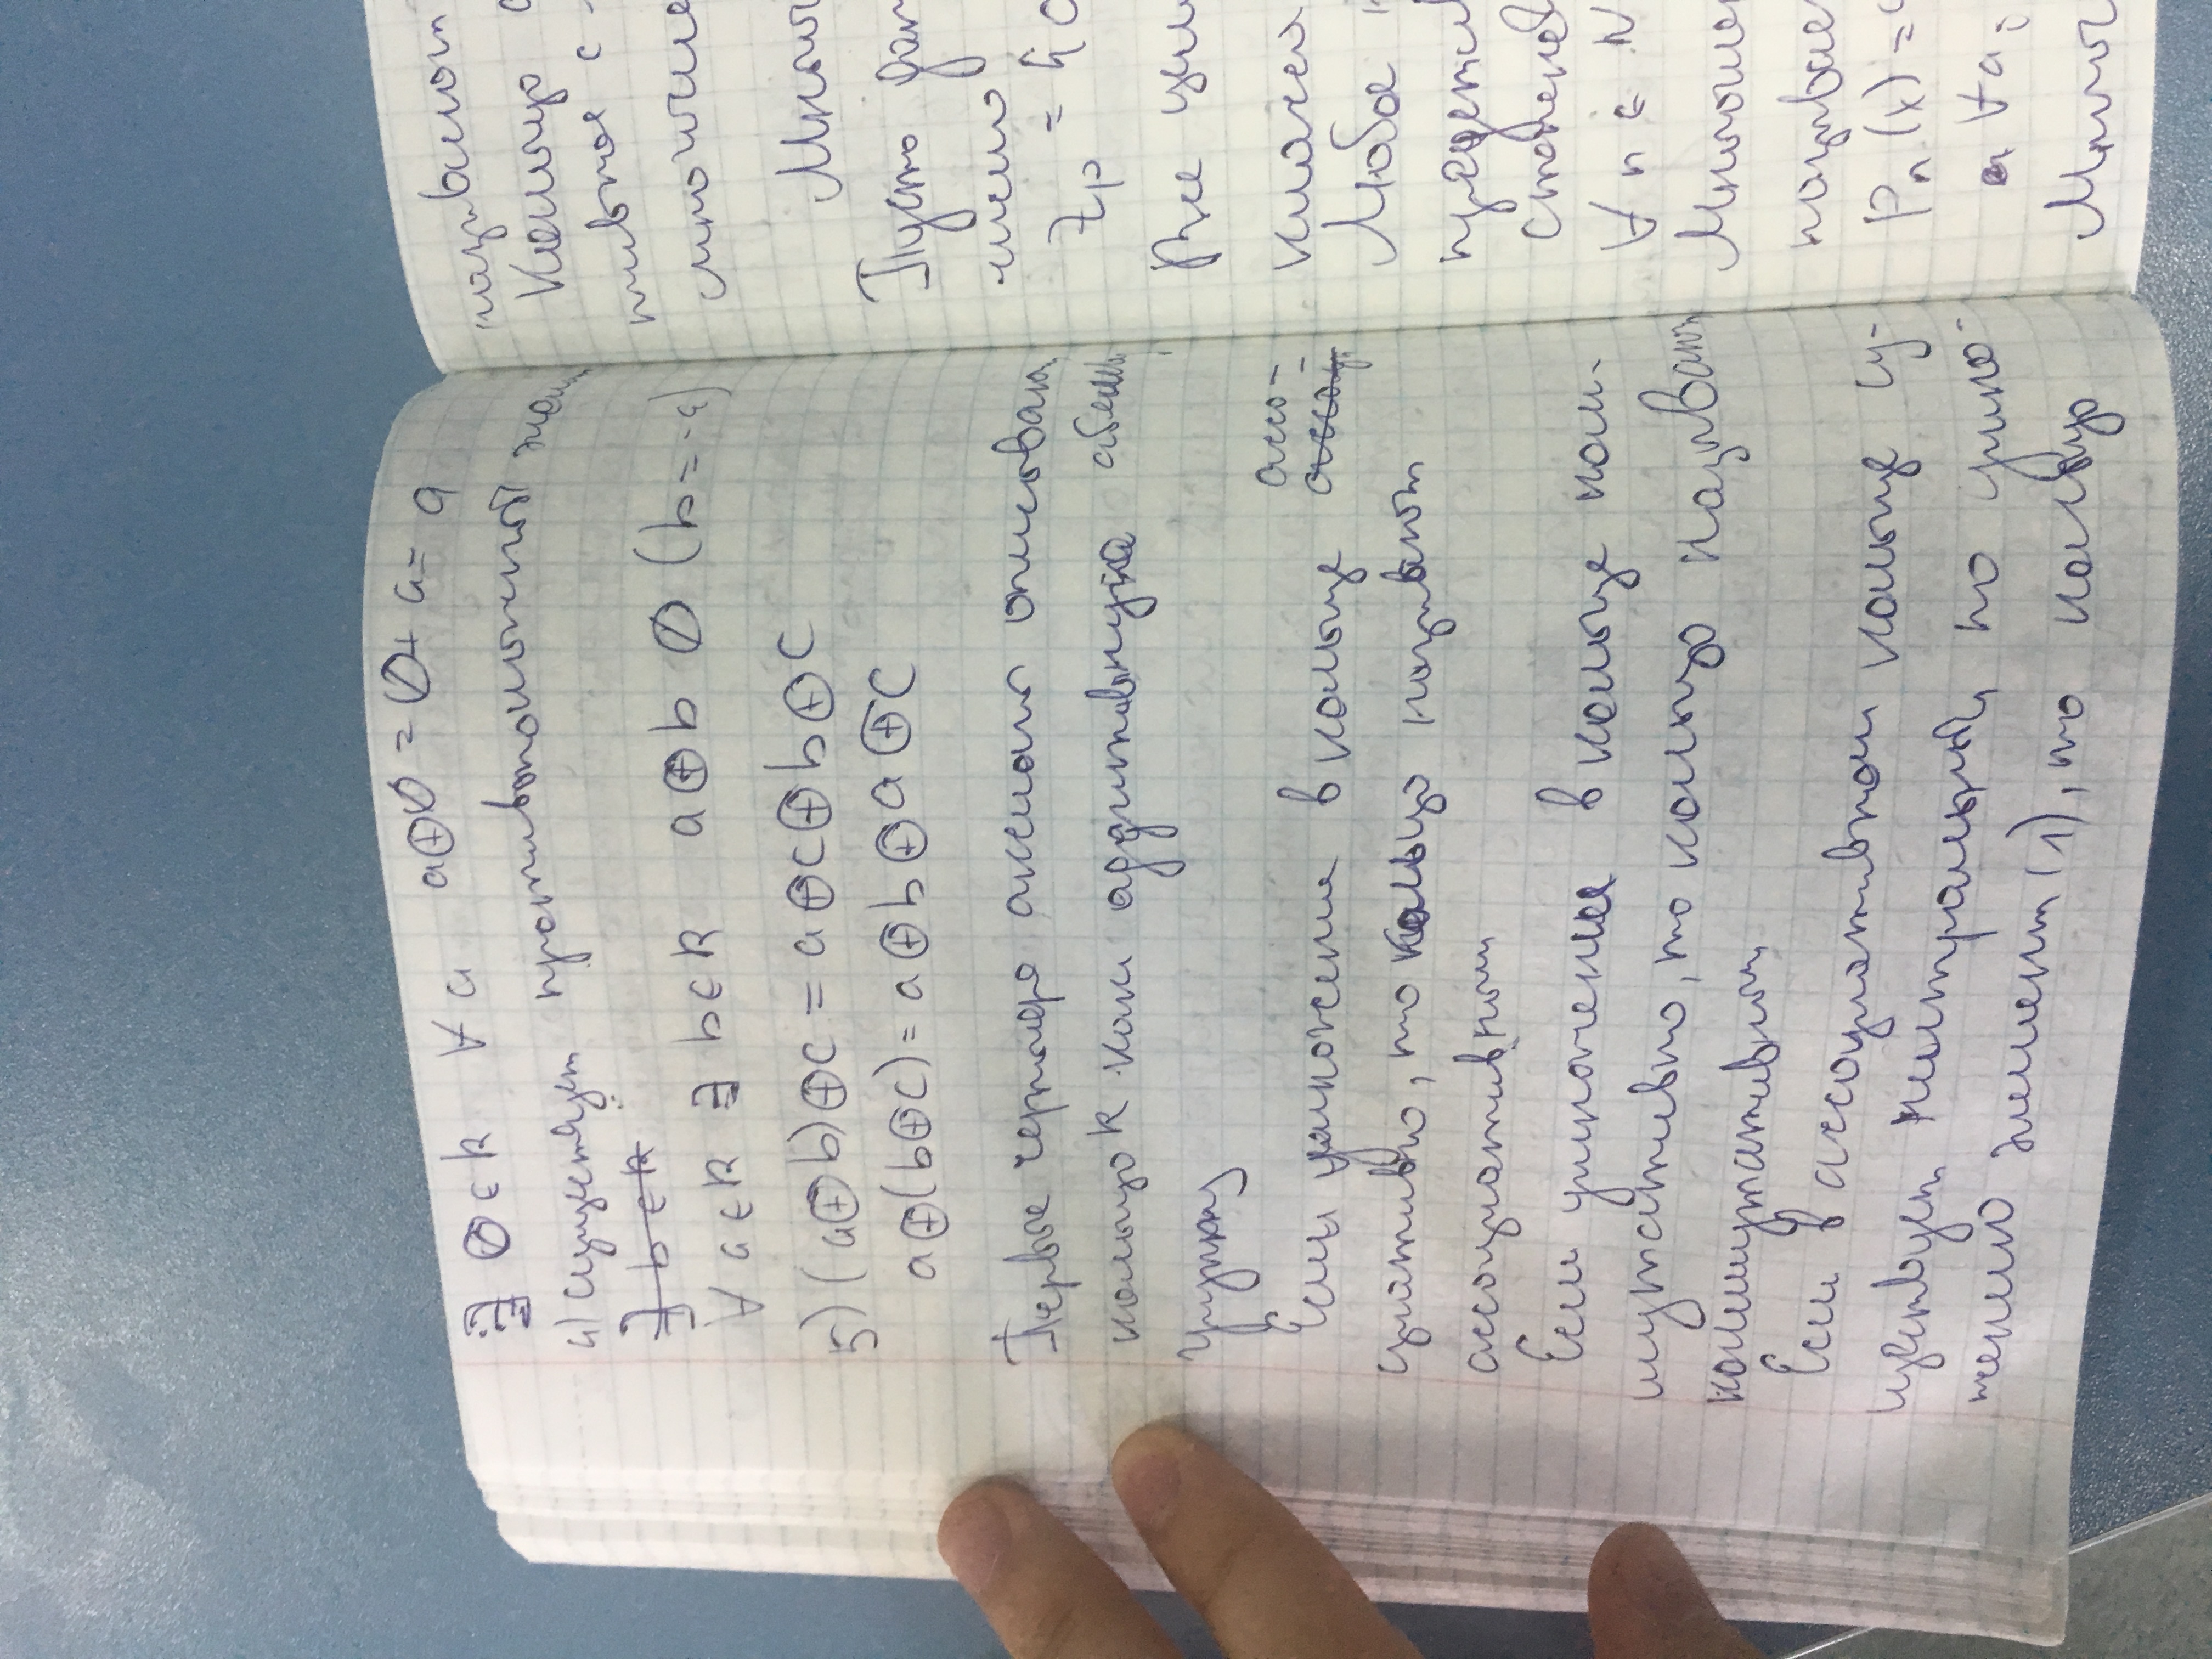 ∃ 0 ∈ K ∀ a a ⊕ 0 = 0 + a = a
4) существует противоположный элем
∃ b ∈ K
∀ a ∈ K ∃ b ∈ K a ⊕ b 0 (b = -a)
5) (a ⊕ b) ⊕ c = a ⊕ c ⊕ b ⊕ c
a ⊕ (b ⊕ c) = a ⊕ b ⊕ a ⊕ c
Первые четыре аксиомы описываю
кольцо K как аддитивную абелев
группу
Если умножение в кольце ассо-
циативно, то кольцо называют
ассоциативным
Если умножение в кольце ком-
мутативно, то кольцо называют
коммутативным
Если в ассоциативном кольце су-
ществует нейтральный по умно-
жению элемент (1), то кольцо
называют
Кольцо
тивное с
множ
Пусть дан
число
Zp = {0
Все цел
класса
Любое
представ
степене
∀ n ∈ N
Многочлен
называе
Pn (x) =
a ∀ ai
Множ